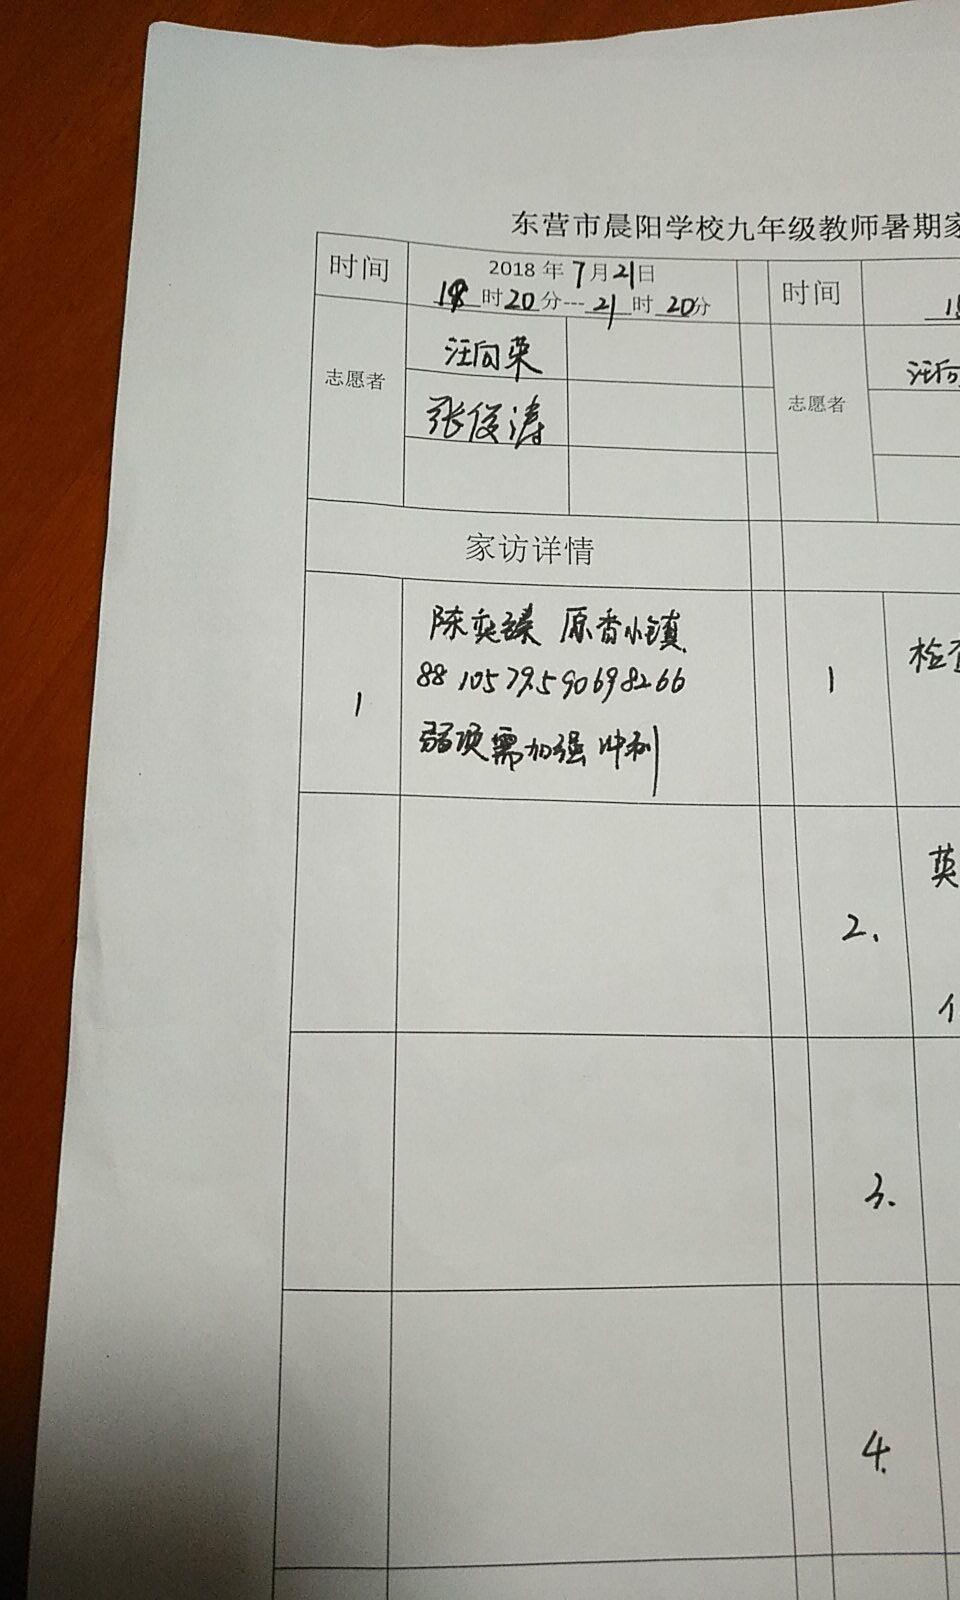 东营市晨阳学校九年级教师暑期家
时间
2018年7月21日
时20分---21时20分
志愿者
汪向荣
张俊涛
家访详情
1
陈奕臻 原香小镇
88 105 79.5 90 69 82 66
弱项需加强 冲刺
时间
志愿者
汪向
1
检查
2.
英
3.
4.